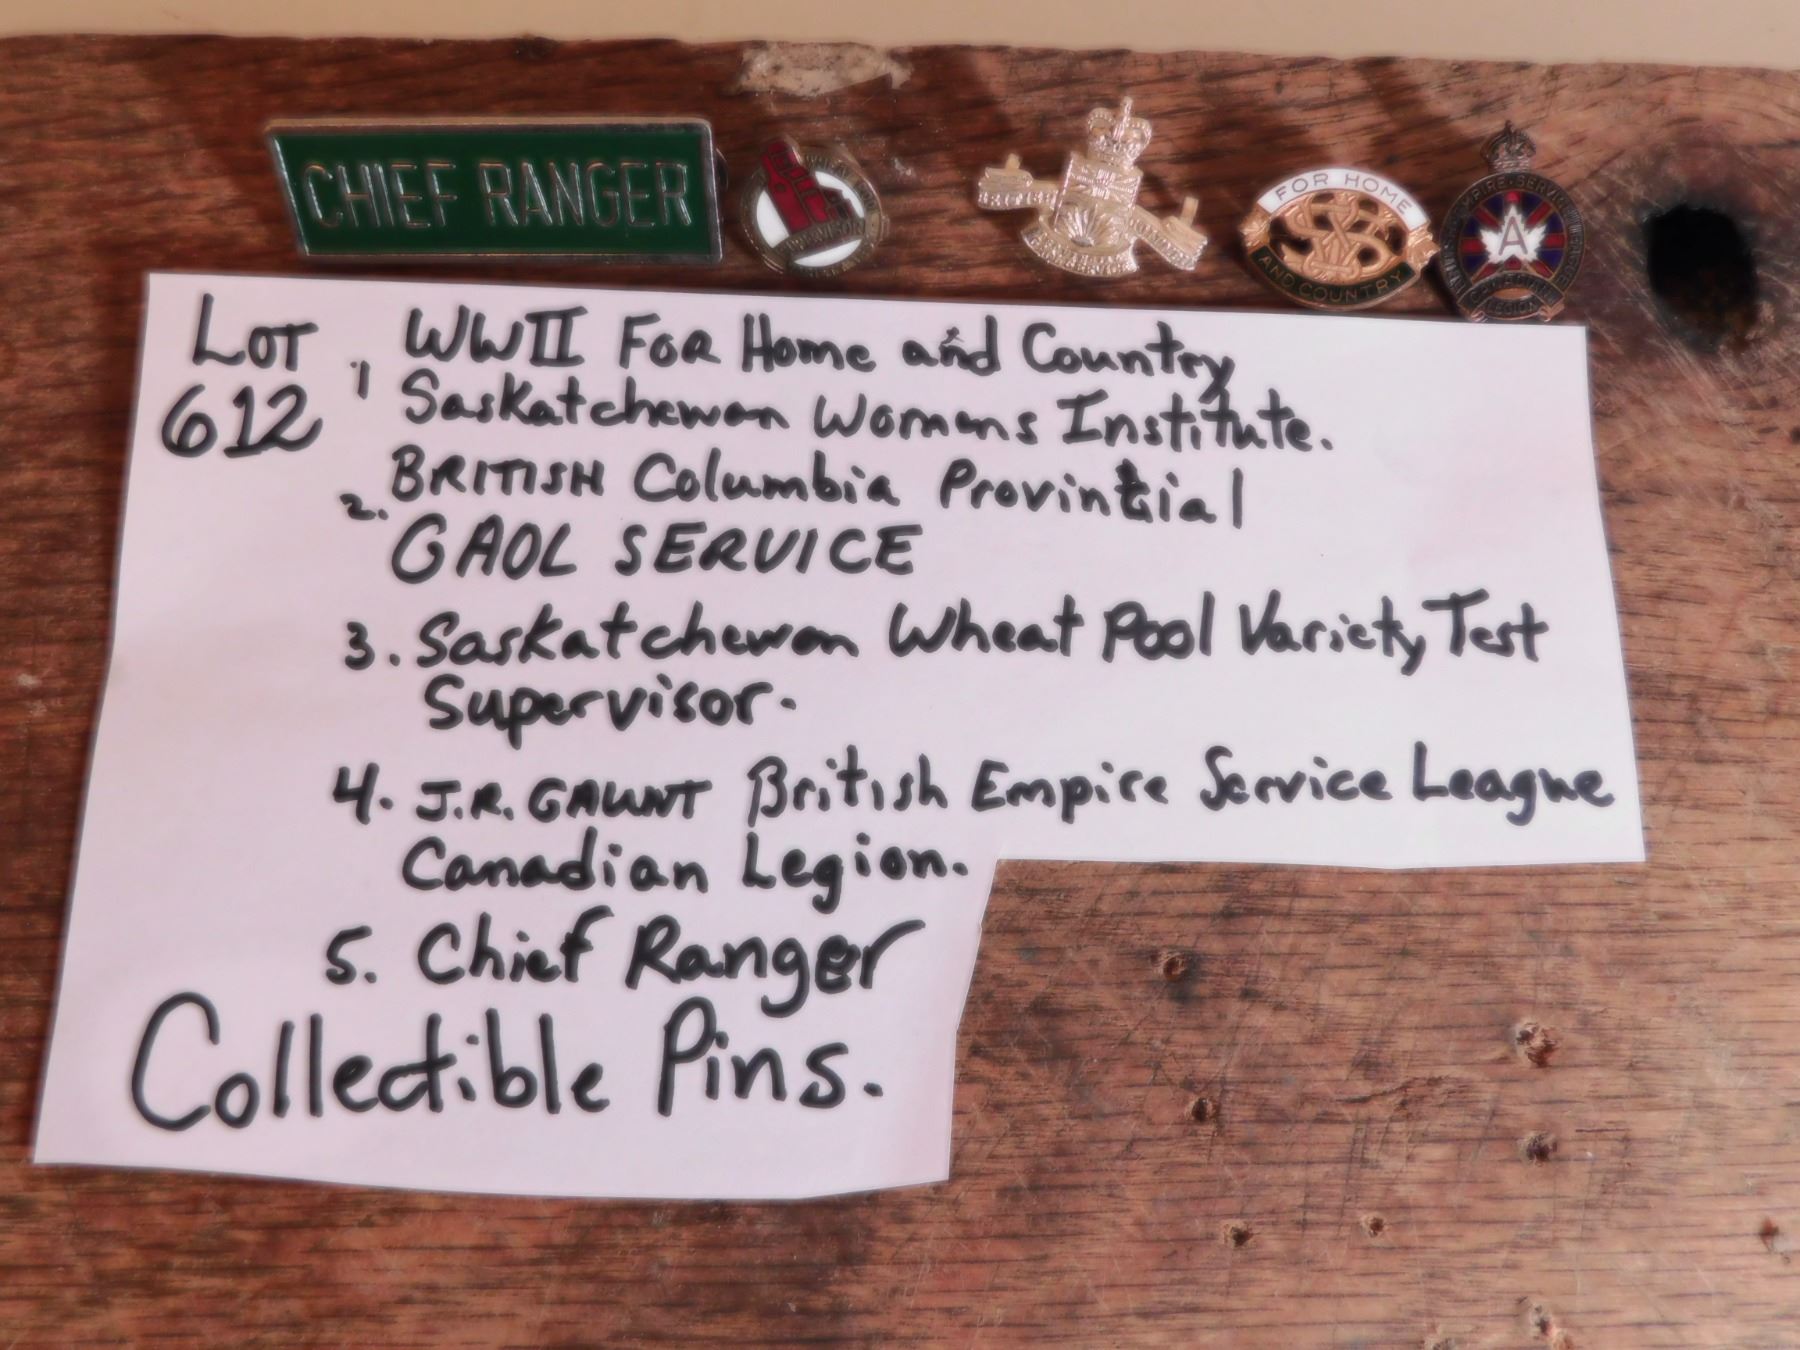 CHIEF RANGER
FOR HOME
AND COUNTRY
A
LEGION
LOT
612
1 WWII FOR Home and Country
Saskatchewan Womens Institute.
2. BRITISH Columbia Provintial
GAOL SERVICE
3. Saskatchewan Wheat Pool Variety Test
Supervisor.
4. J.R. GAUNT British Empire Service League
Canadian Legion.
5. Chief Ranger
Collectible Pins.